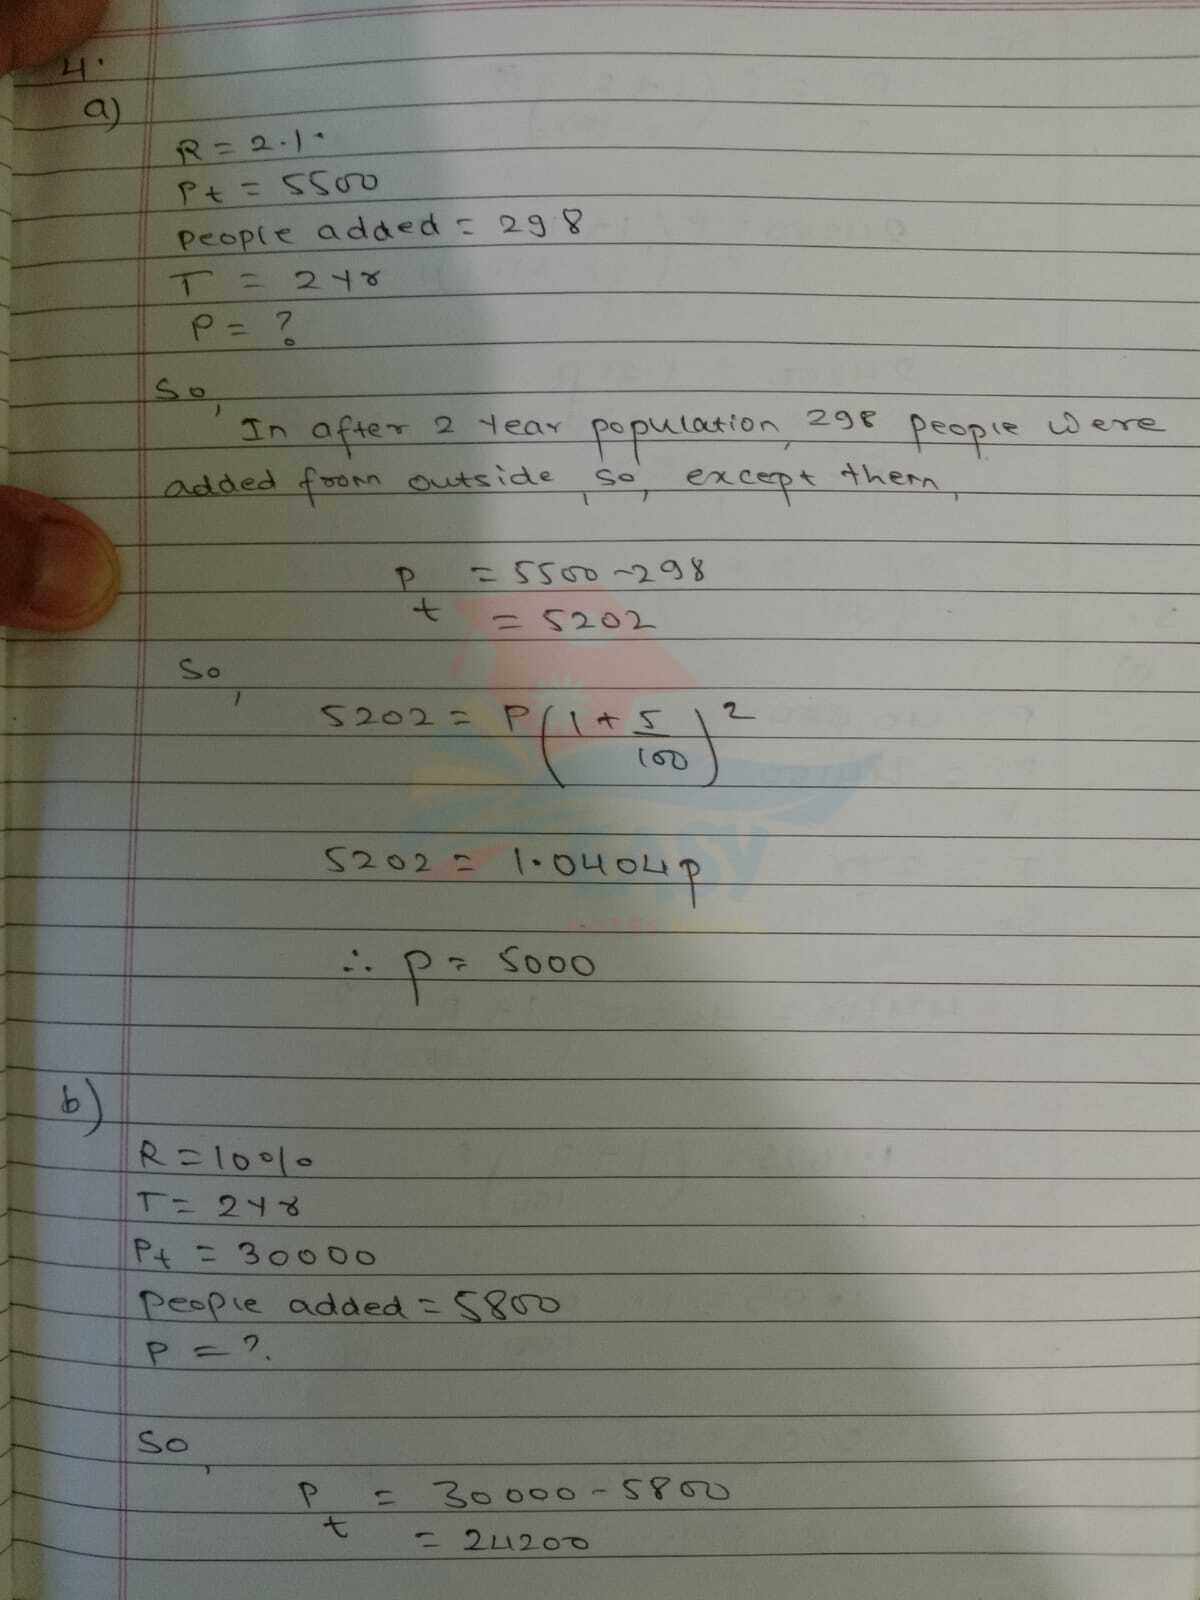 4.
a)
R = 2.1.
Pt = 5500
people added = 298
T = 2 yr
P = ?
So,
In after 2 year population, 298 people were
added from outside, so, except them,
Pt = 5500 - 298
= 5202
So,
5202 = P(1 + 5/100)^2
5202 = 1.0404p
∴ p = 5000
EASY
b)
R = 10%
T = 2 yr
Pt = 30000
people added = 5800
P = ?.
So,
Pt = 30000 - 5800
= 24200